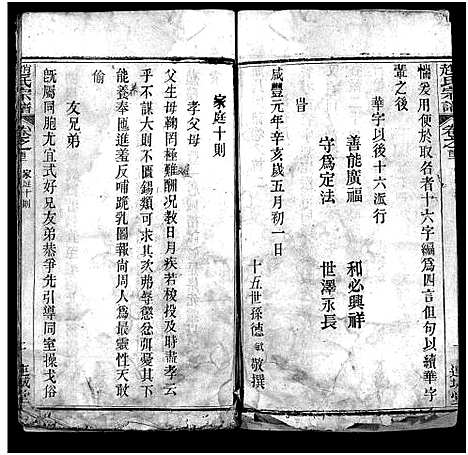 趙氏宗譜
惴爰用便於取名者十六字編爲四言但句以續華字
輩之後
華字以後十六派行
善能廣福
和必興祥
守爲定法
世澤永長
旹
咸豐元年辛亥歲五月初一日
十五世孫德敬撰
家庭十則
孝父母
父生母鞠罔極難酬况敎日月疾若梭投及時盡孝云
乎不諼大則不匱錫類可求其次弟
能養奉匜進羞反哺跪乳圖報尚周人爲最靈性天敢
偷
友兄弟
旣屬同胞尤宜式好兄友弟恭爭先引導同室操戈俗
趙氏宗譜
卷之首
家庭十則